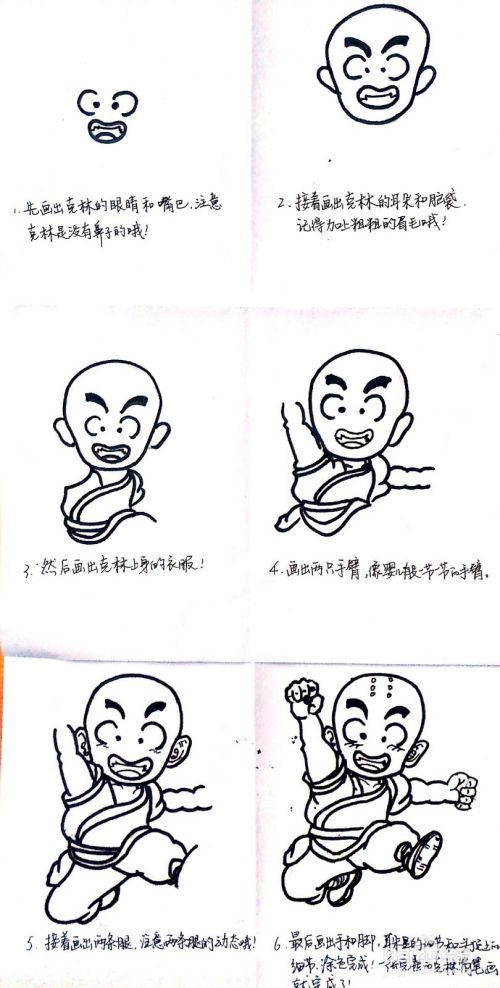 1. 先画出克林的眼睛和嘴巴，注意
克林是没有鼻子的哦！
2. 接着画出克林的耳朵和脑袋.
记得加上粗粗的眉毛哦！
3. 然后画出克林上身的衣服！
4. 画出两只手臂，像婴儿般一节节的手臂。
5. 接着画出两条腿，注意两条腿的动态哦！
6. 最后画出手和脚，耳朵里的细节和头顶上的
细节，涂色完成！ 克林 笔画
就完成了！